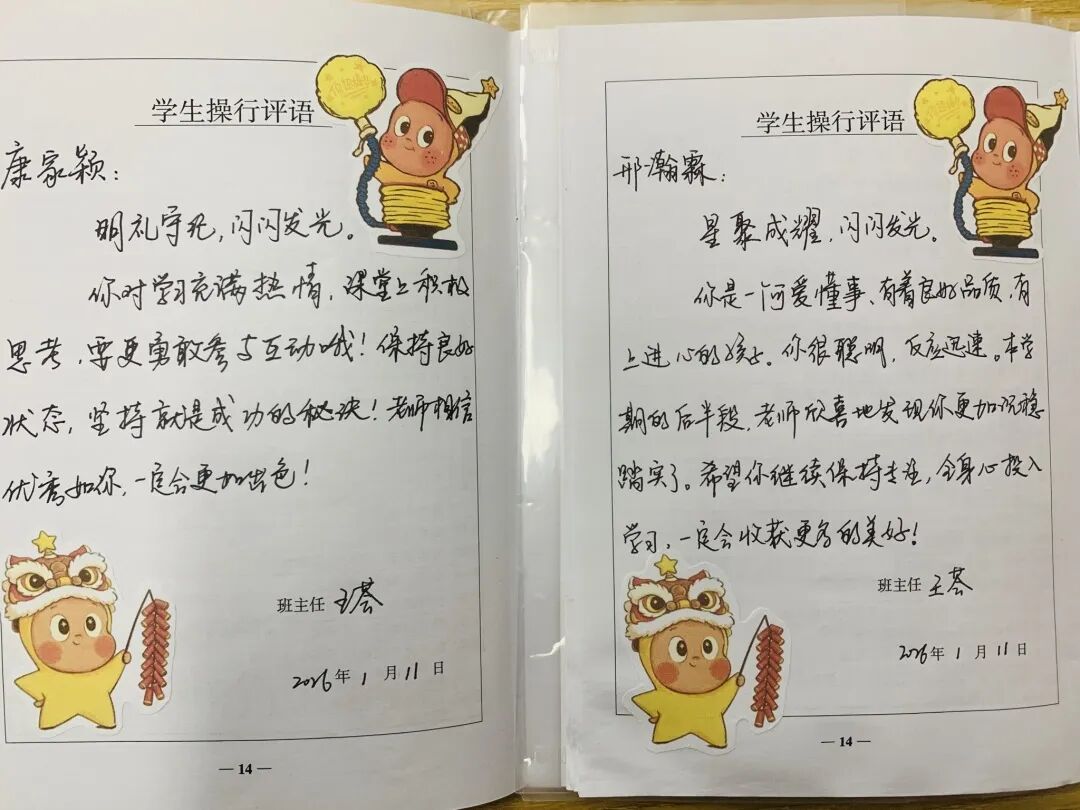 学生操行评语
康家颖：
明礼守礼，闪闪发光。
你对学习充满热情，课堂上积极
思考，要更勇敢参与互动哦！保持良好
状态，坚持就是成功的秘诀！老师相信
优秀如你，一定会更加出色！
班主任 王荟
2026年1月11日
— 14 —
学生操行评语
邢瀚霖：
星聚成耀，闪闪发光。
你是一可爱懂事、有着良好品质，有
上进心的孩子。你很聪明，反应迅速。本学
期的后半段，老师欣喜地发现你更加沉稳
踏实了。希望你继续保持专注，全身心投入
学习，一定会收获更多的美好！
班主任 王荟
2026年1月11日
— 14 —